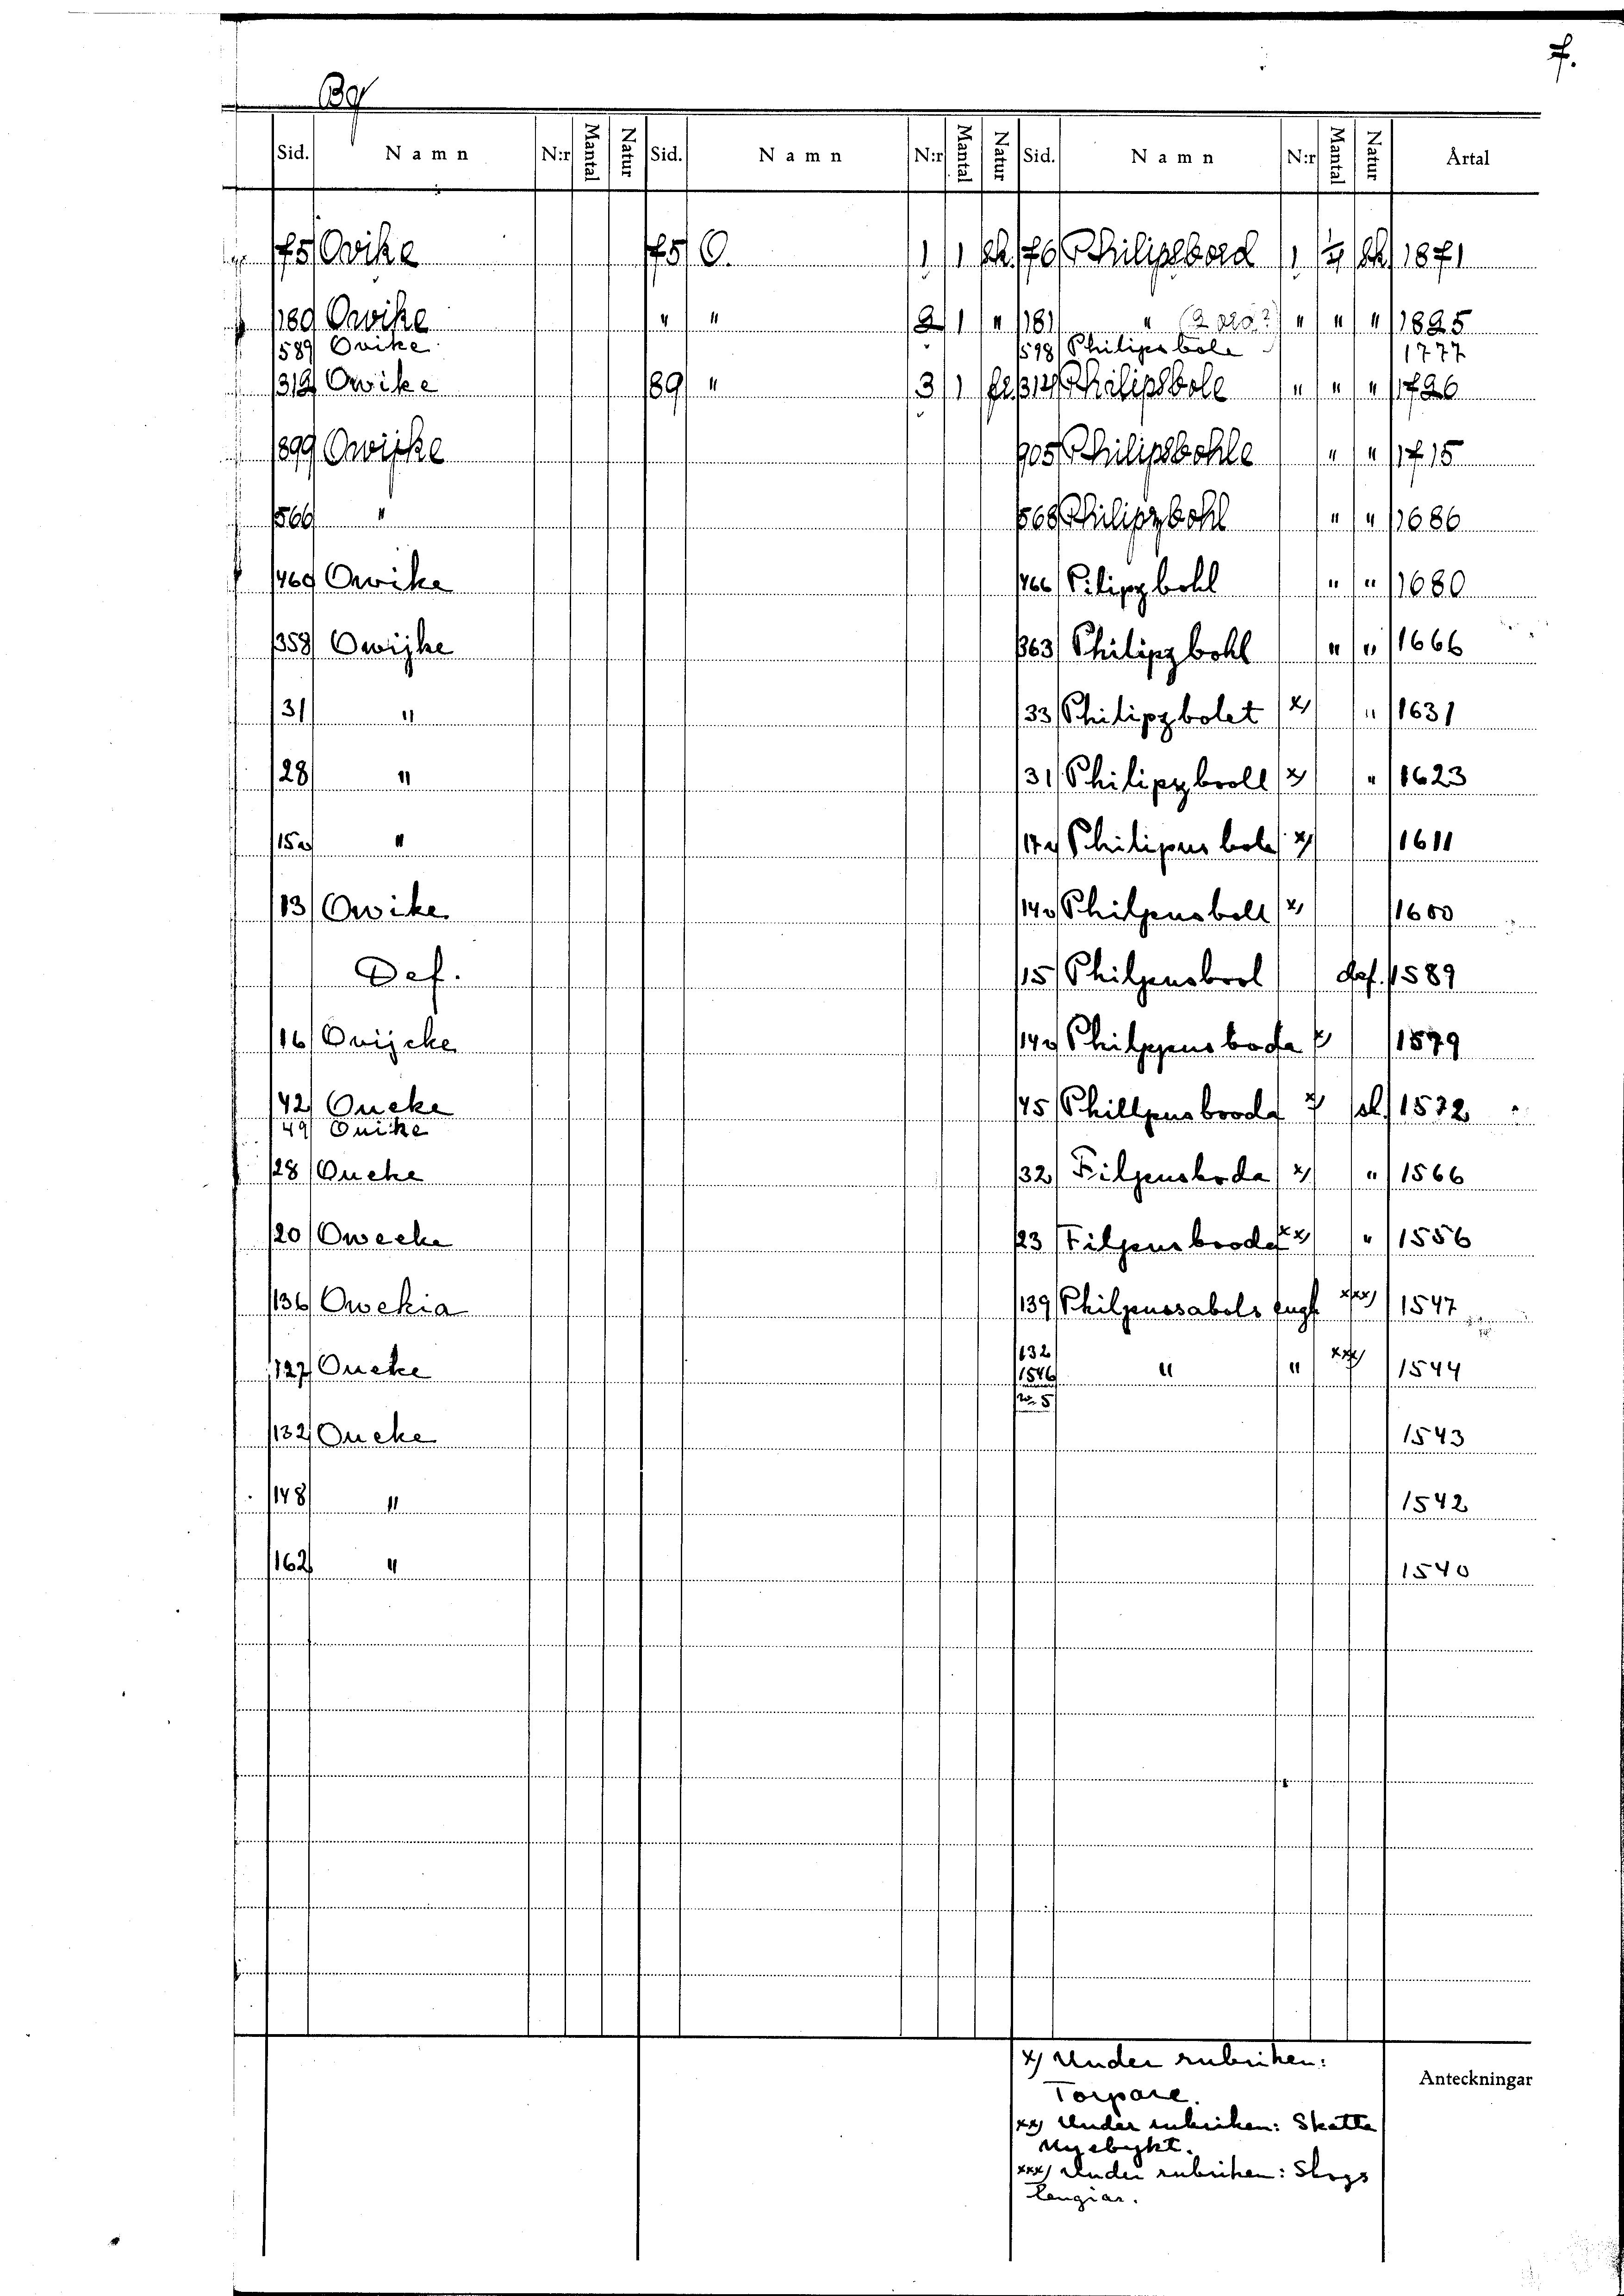 7.
Bg
Sid. Namn N:r Mantal Natur Sid. Namn N:r Mantal Natur Sid. Namn N:r Mantal Natur Årtal
75 Ovike 75 O. 1 1 sk. 76 Philipsbord 1 1/4 sk. 1871
180 Owike " " 2 1 " 181 " " " " 1825
589 Ovike 598 Philipsbole 1777
312 Owike 89 " 3 1 fr. 314 Philipsbole " " " 1726
899 Owijke 905 Philipsbohle " " 1715
566 " 568 Philipzbohl " " 1686
460 Owike 466 Pilipzbohl " " 1680
358 Owijke 363 Philipzbohl " " 1666
31 " 33 Philipzbolet x) " 1631
28 " 31 Philipzbooll x) " 1623
15v " 17v Philipus bole x) 1611
13 Owike 14v Philpusboll x) 1600
Def. 15 Philpusbool def. 1589
16 Ovijcke 14v Philppusboda x) 1579
42 Oueke 45 Phillpusbooda x) sk. 1572
49 Ouike
28 Oueke 32 Filpusboda x) " 1566
20 Owecke 23 Filpusbooda xx) " 1556
136 Owekia 139 Philpussabols engh xxx) 1547
127 Oueke 132 1546 nr 5 " " xxx) 1544
132 Oueke 1543
148 " 1542
162 " 1540
x) Under rubriken:
Torpare.
xx) Under rubriken: Skatta
Nyebykt.
xxx) Under rubriken: Skogs
Anteckningar